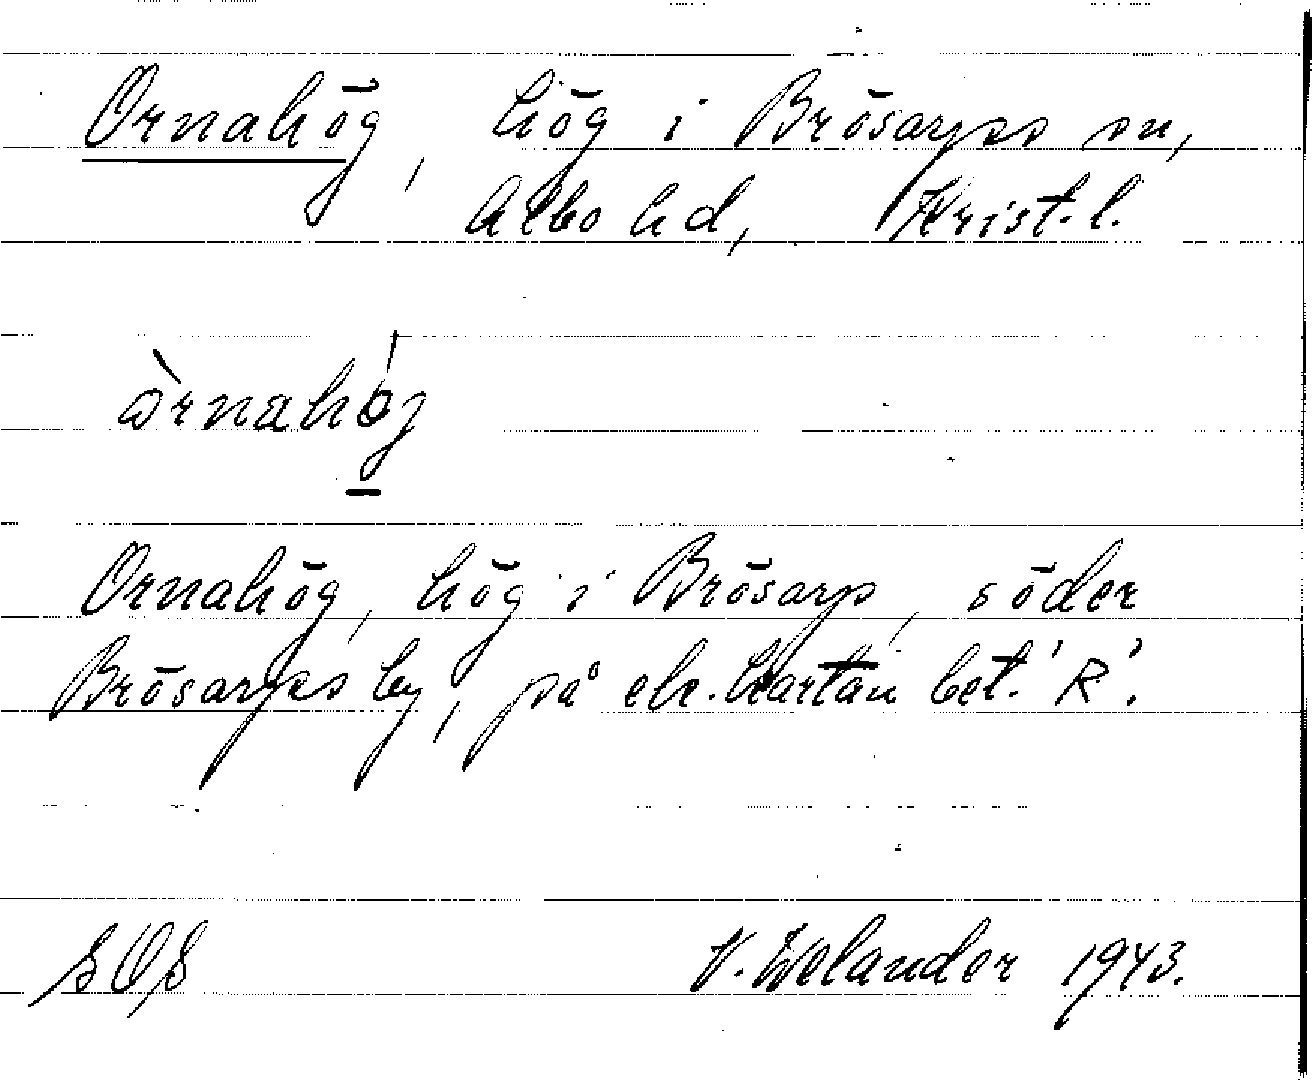 Ornahög, hög i Brösarps sn,
Albo hd, Krist. l.
òrnahǿj
Ornahög, hög i Brösarp, söder
Brösarps by, på ek. kartan bet. 'R'.
SOS
V. Welander 1943.